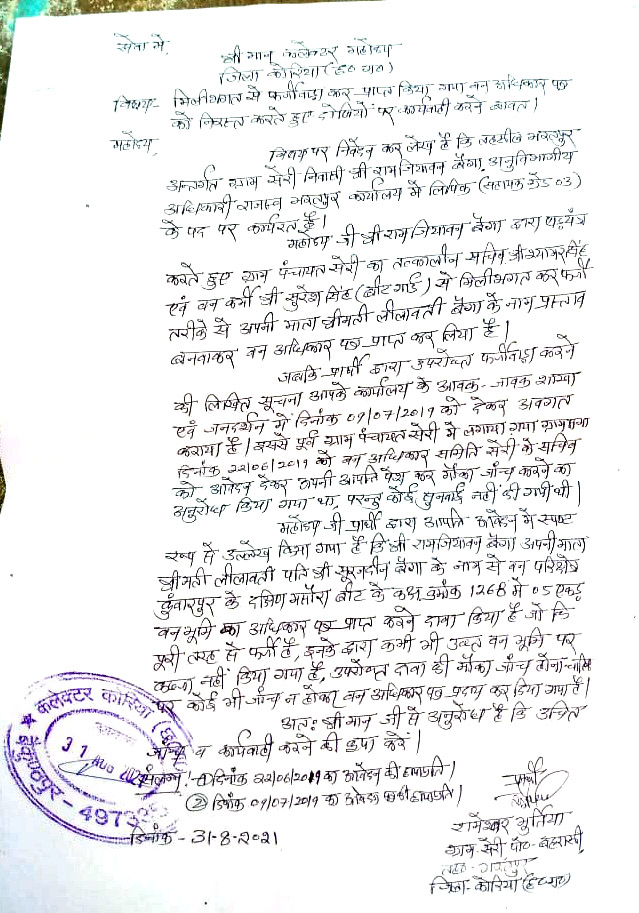 सेवा में,
श्री मान कलेक्टर महोदय
जिला कोरिया (छ० ग०)
विषय:- मिलीभगत से फर्जीवाड़ा कर प्राप्त किया गया वन अधिकार पत्र
को निरस्त करते हुए दोषियों पर कार्यवाही करने बावत।
महोदय,
विषय पर निवेदन कर लेख है कि तहसील भरतपुर
अन्तर्गत ग्राम सेरी निवासी श्री रामजियावन बैगा, अनुविभागीय
अधिकारी राजस्व भरतपुर कार्यालय में लिपिक (सहायक ग्रेड 03)
के पद पर कार्यरत है।
महोदय जी श्री रामजियावन बैगा द्वारा षड्यंत्र
करते हुए ग्राम पंचायत सेरी का तत्कालीन सचिव श्री सिंह
एवं वन कर्मी श्री सुरेश सिंह (बीट गार्ड) से मिलीभगत कर फर्जी
तरीके से अपनी माता श्रीमती लीलावती बैगा के नाम प्रस्ताव
बनवाकर वन अधिकार पत्र प्राप्त कर लिया है।
जबकि प्रार्थी द्वारा उपरोक्त फर्जीवाड़ा करने
की लिखित सूचना आपके कार्यालय के आवक-जावक शाखा
एवं जनदर्शन में दिनांक 09/07/2019 को देकर अवगत
कराया है। इससे पूर्व ग्राम पंचायत सेरी में लगाया गया ग्रामसभा
दिनांक 22/06/2019 को वन अधिकार समिति सेरी के सचिव
को आवेदन देकर अपनी आपत्ति पेश कर मौका जाँच करने का
अनुरोध किया गया था, परन्तु कोई सुनवाई नहीं की गयी थी।
महोदय जी प्रार्थी द्वारा आपत्ति आवेदन में स्पष्ट
रूप से उल्लेख किया गया है कि श्री रामजियावन बैगा अपनी माता
श्रीमती लीलावती पति श्री सूरजदीन बैगा के नाम से वन परिक्षेत्र
कुंवारपुर के दक्षिण बीट के कक्ष क्रमांक 1268 में 05 एकड़
वन भूमि का अधिकार पत्र प्राप्त करने दावा किया है जो कि
पूरी तरह से फर्जी है, इनके द्वारा कभी भी उक्त वन भूमि पर
कब्जा नहीं किया गया है, उपरोक्त दावा की मौका जाँच होना चाहिए
पर कोई भी जाँच न होकर वन अधिकार पत्र प्रदाय कर दिया गया है।
अतः श्री मान जी से अनुरोध है कि उचित
जाँच व कार्यवाही करने की कृपा करें।
संलग्न:- ① दिनांक 22/06/2019 का आवेदन की छायाप्रति।
② दिनांक 09/07/2019 का आवेदन पत्र की छायाप्रति।
प्रार्थी
दिनाँक - 31-8-2021
रामेश्वर
ग्राम-सेरी पो०-बहरासी
तह०-भरतपुर
जिला-कोरिया (छ०ग०)
★ कलेक्टर कोरिया
31 AUG 2021
बैकुण्ठपुर - 4973